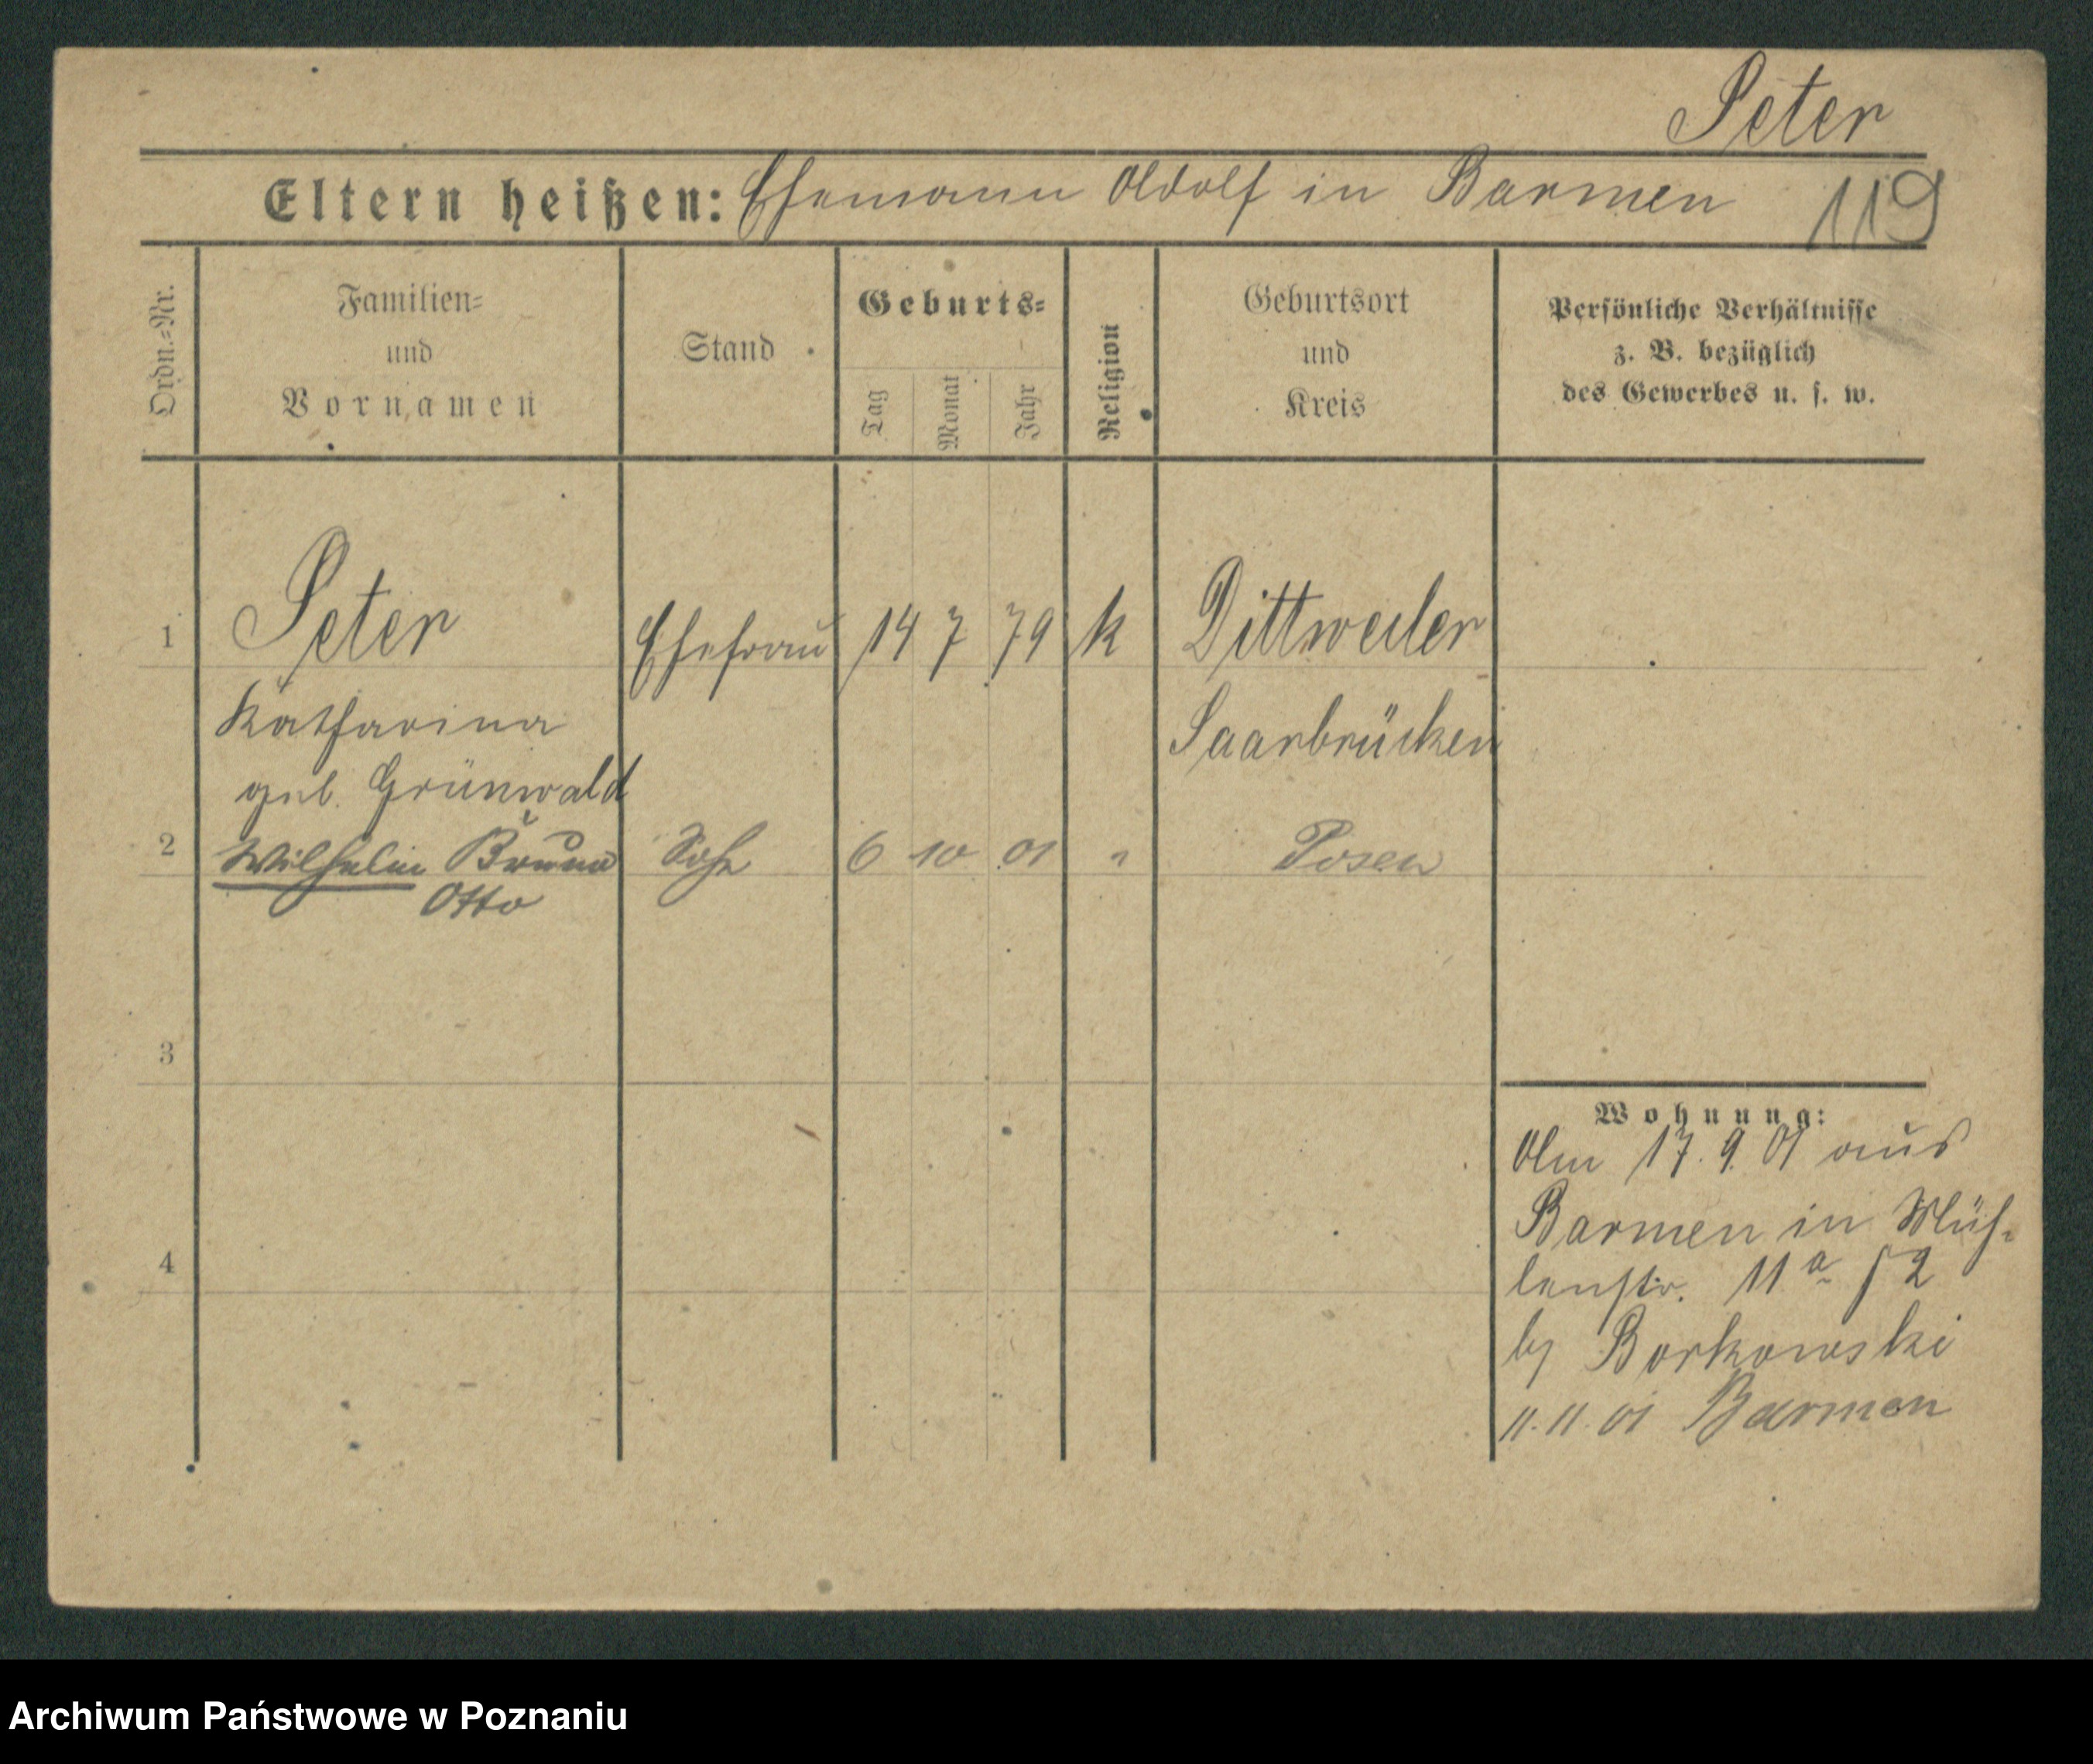 Peter
Eltern heißen: Ehemann Adolf in Barmen 119
Ordn.=Nr.
Familien=
und
Vornamen
Stand
Geburts=
Tag
Monat
Jahr
Religion
Geburtsort
und
Kreis
Persönliche Verhältnisse
z. B. bezüglich
des Gewerbes u. s. w.
1 Peter Ehefrau 14 7 79 k Dittweiler
Katharina Saarbrücken
geb. Grünwald
2 Wilhelm Bruno Sohn 6 10 01 " Posen
Otto
3
4
Wohnung:
Am 17. 9. 01 aus
Barmen in Müh=
lenstr. 11 a 2
by Borkowski
11. 11. 01 Barmen
Archiwum Państwowe w Poznaniu